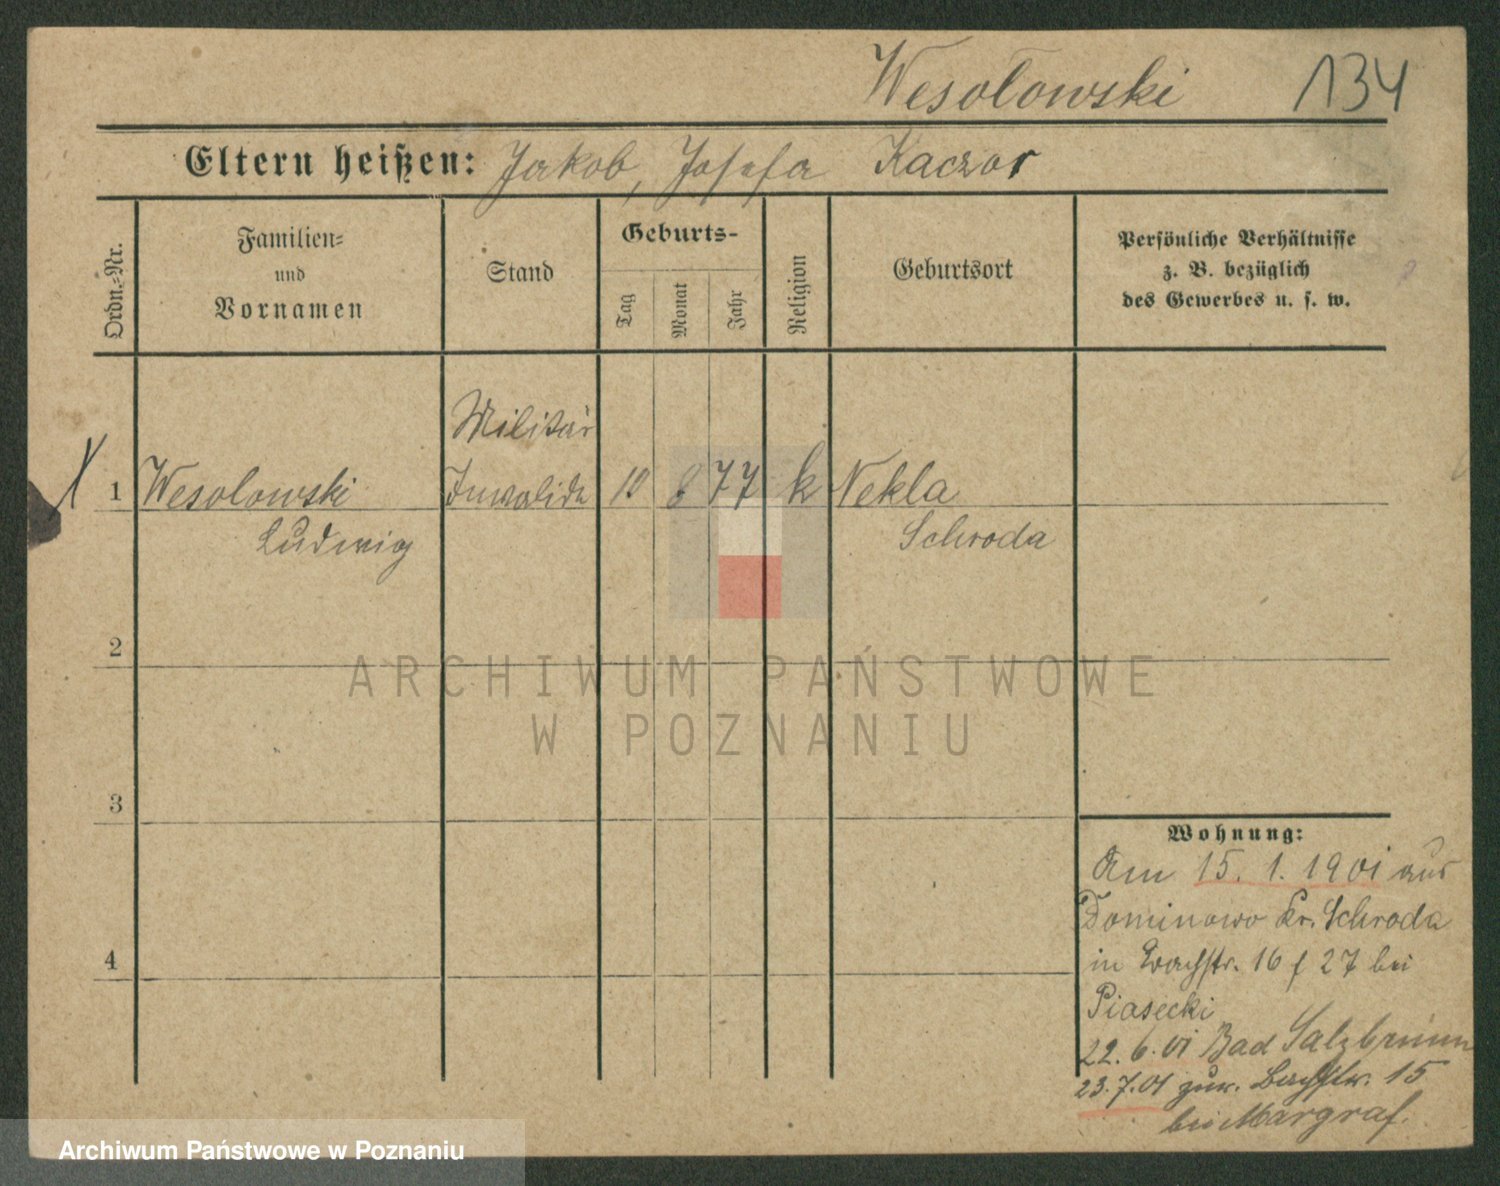 Wesołowski 134
Eltern heißen: Jakob, Josefa Kaczor
Ordn.-Nr.
Familien-
und
Vornamen
Stand
Geburts-
Tag
Monat
Jahr
Religion
Geburtsort
Persönliche Verhältnisse
z. B. bezüglich
des Gewerbes u. s. w.
Militär
1 Wesolowski Invalide 10 8 77 k Nekla
Ludwig Schroda
2
ARCHIWUM PAŃSTWOWE
W POZNANIU
3
4
Wohnung:
Am 15. 1. 1901 aus
Dominowo Kr. Schroda
in 16 f 27 bei
Piasecki
22. 6. 01 Bad Salzbrunn
23. 7. 01 zur. Bachstr. 15
bei Margraf.
Archiwum Państwowe w Poznaniu